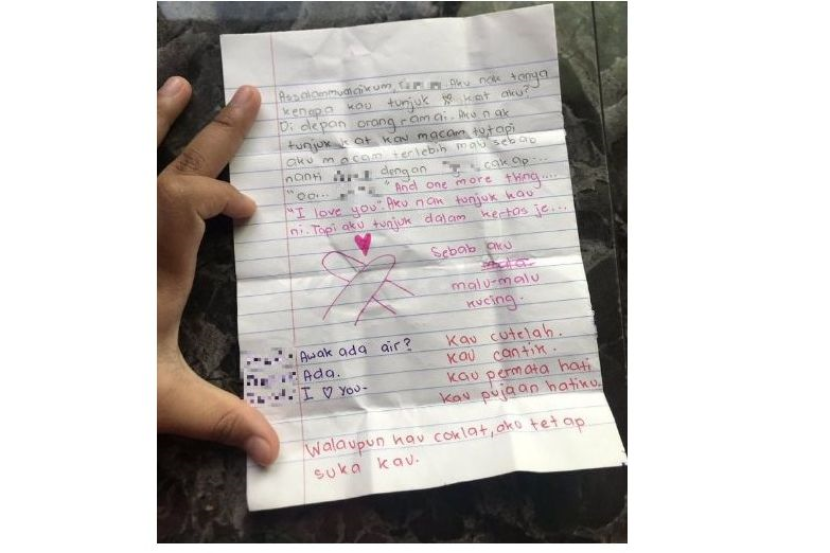 Assalammualaikum, Aku nak tanya
kenapa kau tunjuk kat aku?
Di depan orang ramai. Aku nak
tunjuk kat kau macam tu tapi
aku macam terlebih malu sebab
nanti dengan " ", cakap...
"oo... " And one more thing....
"I love you". Aku nak tunjuk kau
ni. Tapi aku tunjuk dalam kertas je...
Sebab aku
malu-malu
kucing.
Awak ada air?
Ada.
I ♡ you-
Kau cutelah.
Kau cantik.
Kau permata hati
Kau pujaan hatiku.
Walaupun kau coklat, aku tetap
suka kau.